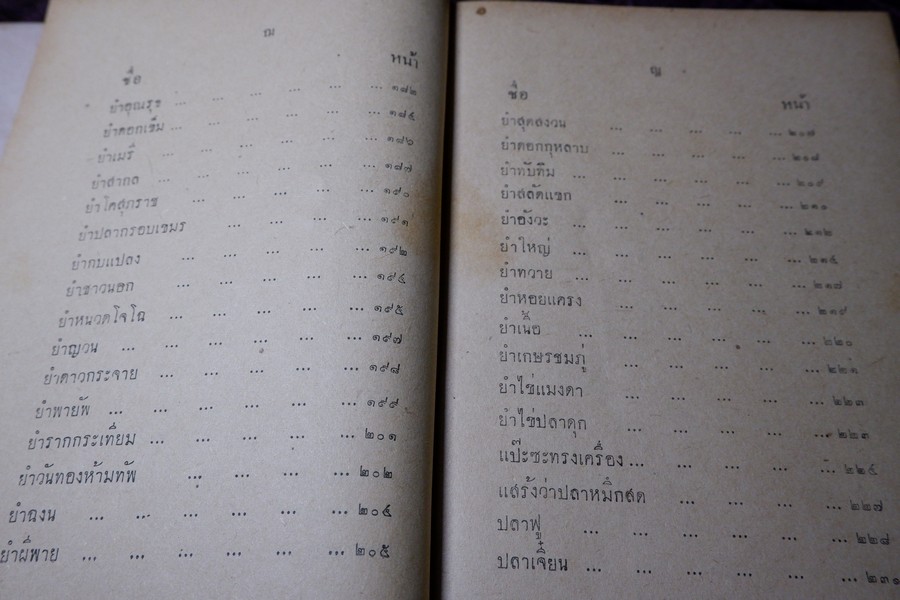 ฌ
ชื่อ หน้า
ยำอุณรุธ ... ... ... ... ... ๑๘๒
ยำดอกเข็ม ... ... ... ... ... ๑๘๔
ยำเมรี ... ... ... ... ... ๑๘๖
ยำสากล ... ... ... ... ... ๑๘๗
ยำไตสุกราช ... ... ... ... ๑๙๐
ยำปลากรอบเขมร ... ... ... ๑๙๑
ยำกบแปลง ... ... ... ... ๑๙๒
ยำชาวนอก ... ... ... ... ๑๙๔
ยำหนวดโจโฉ ... ... ... ... ๑๙๕
ยำญวน ... ... ... ... ... ... ๑๙๗
ยำดาวกระจาย ... ... ... ... ... ๑๙๘
ยำพายัพ ... ... ... ... ... ... ๑๙๙
ยำรากกระเทียม ... ... ... ... ... ๒๐๑
ยำวันทองห้ามทัพ ... ... ... ... ๒๐๒
ยำฉงน ... ... ... ... ... ... ๒๐๔
ยำผีพาย ... ... ... ... ... ... ๒๐๕
ญ
ชื่อ หน้า
ยำสุดสงวน ... ... ... ... ๒๐๗
ยำดอกกุหลาบ ... ... ... ...
ยำทับทิม ... ... ... ... ...
ยำสลัดแขก ... ... ... ...
ยำอังวะ ... ... ... ... ... ๒๑๒
ยำใหญ่ ... ... ... ... ... ๒๑๔
ยำทวาย ... ... ... ... ... ๒๑๗
ยำหอยแครง ... ... ... ... ๒๑๙
ยำเนื้อ ... ... ... ... ... ๒๒๐
ยำเกษรชมภู่ ... ... ... ... ๒๒๑
ยำไข่แมงดา ... ... ... ... ๒๒๓
ยำไข่ปลาดุก ... ... ... ... ๒๒๓
แป๊ะซะทรงเครื่อง ... ... ... ... ... ๒๒๕
แสร้งว่าปลาหมึกสด ... ... ... ... ๒๒๗
ปลาฟู ... ... ... ... ... ... ๒๒๘
ปลาเจี๋ยน ... ... ... ... ... ... ๒๓๑